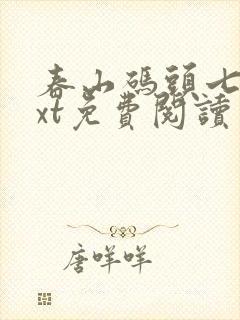 春山碼頭七
xt免費閱讀
唐咩咩